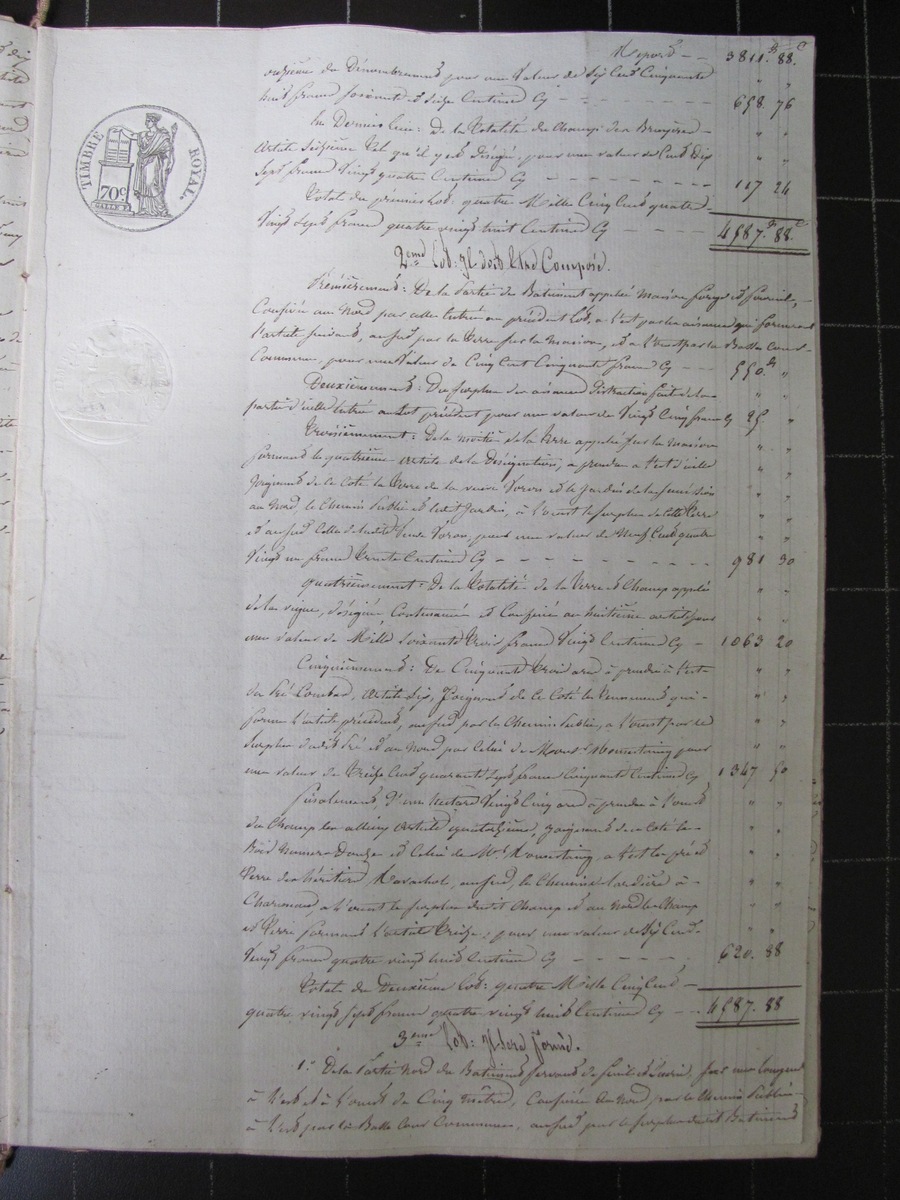 TIMBRE ROYAL
70c
Report — 3811 fr 88 c
onzième du Dénombrement pour une Valeur de Six Cent Cinquante
huit francs soixante et Seize Centimes Cy — 658. 76
En Dernier lieu: de la totalité du Champ des Bruyères
Article Seizième tel qu'il y est Désigné, pour une valeur de Cent Dix
Sept francs Vingt quatre Centimes Cy — 117 24
Total du premier Lot quatre Mille Cinq Cent quatre
Vingt Sept francs quatre vingt huit Centimes Cy — 4587. 88
2eme Lot: Il doit être Composé.
Prémièrement: De la Partie de Batiment appelée Maison forge et
Confinée au Nord par celle Entrée au précédent Lot, à l'est par les aisances qui forment
l'article suivant, au sud par la terre sur la maison, et à l'Ouest par la Basse Cour
Commune, pour une Valeur de Cinq Cent Cinquante francs Cy — 550. "
Deuxièmement: Du surplus des aisances Distraction faite de la
partie d'icelle Entrée au Lot précédent pour une valeur de Vingt Cinq francs Cy 25 "
Troisièmement: De la moitié de la Terre appelée sur la maison
formant le quatrième article de la Désignation, à prendre à l'est d'icelle
Joignant de ce Coté la Terre de la veuve et le Jardin de la
au Nord, le Chemin Public et ledit Jardin, à l'ouest le surplus de Cette Terre
et au sud Celle de ladite Veuve pour une valeur de Neuf Cent quatre
Vingt un francs Trente Centimes Cy — 981 30
Quatrièmement: De la Totalité de la Terre et Champ appelé
de la vigne, désignée, Contenancée et Confinée au huitième article pour
une valeur de Mille Soixante Trois francs Vingt Centimes Cy — 1063 20
Cinquièmement: De Cinquante Trois ares à prendre à l'est
du Pré Lombard, Article Six, Joignant de ce Coté les qui
forme l'article précédent, au sud par le Chemin Public, à l'ouest par le
Surplus dudit Pré et au Nord par Celui de Mons. pour
une valeur de Treize Cent quarante Sept francs Cinquante Centimes Cy 1347 50
Finalement, D'un hectare Vingt Cinq ares à prendre à l'ouest
du Champ Article quatorzième, Joignant de ce Coté le
Bois et Celui de Mr. à l'est le pré et
Terre des héritiers au sud, le Chemin à
à l'ouest le surplus dudit Champ et au Nord le Champ
et Terre formant l'article Treize: pour une valeur de Six Cent
Vingt francs quatre vingt huit Centimes Cy — 620. 88
Total du Deuxième Lot: quatre Mille Cinq Cent
quatre vingt Sept francs quatre vingt huit Centimes Cy — 4587. 88
3eme Lot: Il sera Formé.
1° De la Partie Nord du Batiment servant de et Ecurie, sur une longueur
à l'est et à l'ouest de Cinq Mètres, Confinée au Nord par le Chemin Public
à l'est par la Basse Cour Commune, au sud par le surplus dudit Batiment